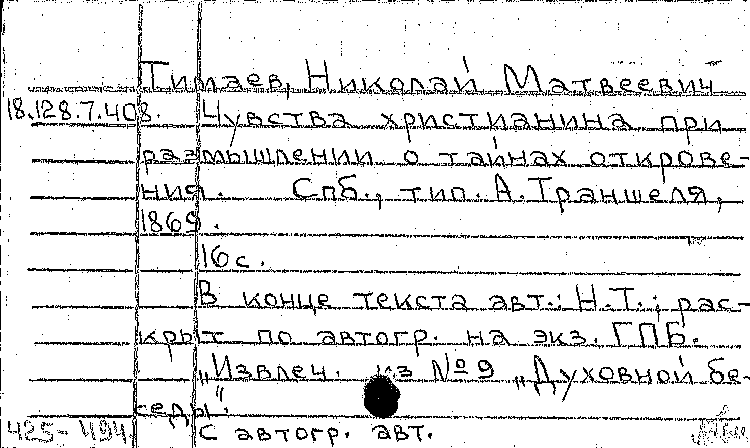 Тимаев, Николай Матвеевич
18.128.7.408. Чувства христианина при
размышлении о тайнах открове-
ния. Спб., тип. А. Траншеля,
1869.
16 с.
В конце текста авт.: Н.Т.; рас-
крыт по автогр. на экз. ГПБ.
„Извлеч. из №9 „Духовной бе-
седы".
425-494. С автогр. авт.